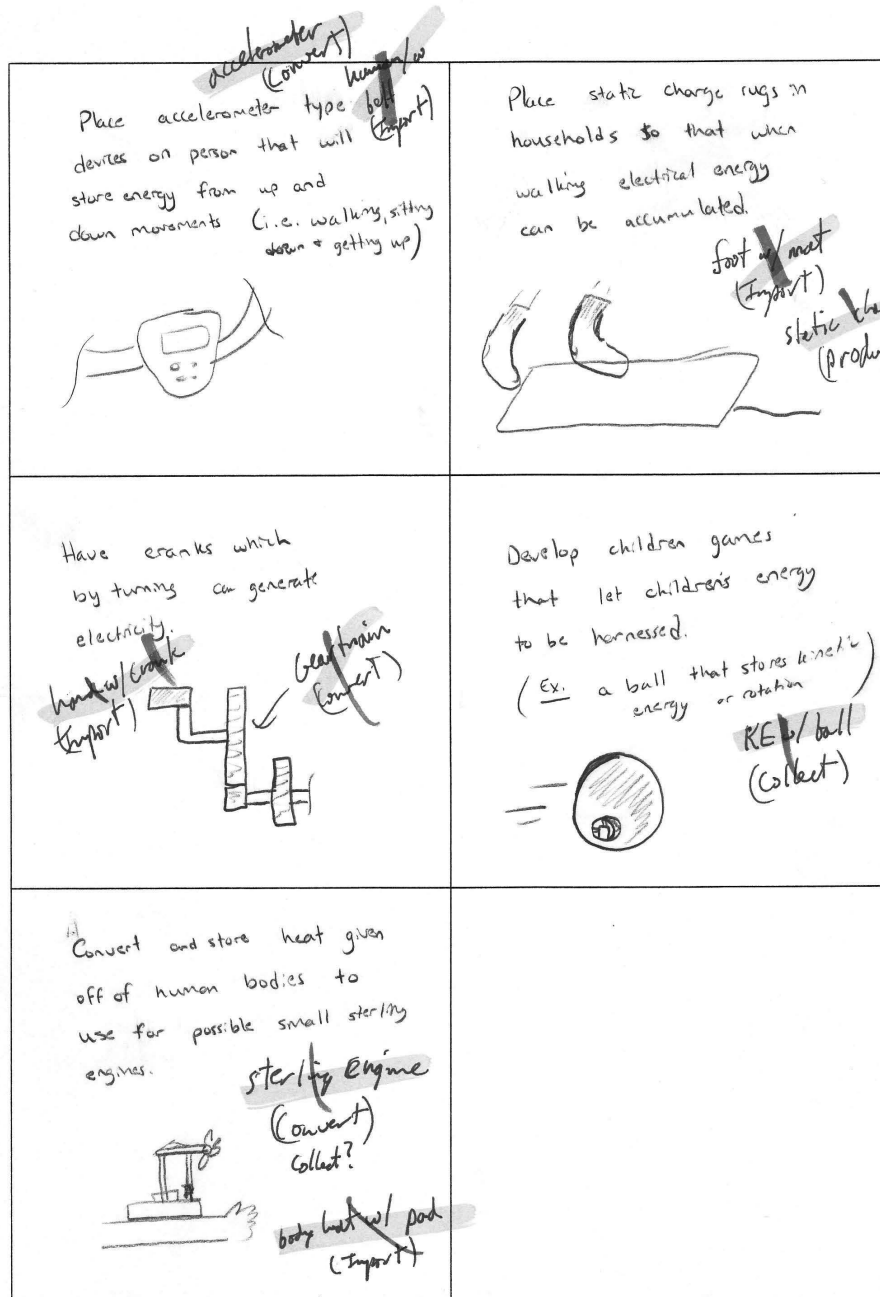 accelerometer
(Convert)
human/w
belt
(Import)
Place accelerometer type
devices on person that will
store energy from up and
down movements (i.e. walking, sitting
down & getting up)
Place static charge rugs in
households so that when
walking electrical energy
can be accumulated.
foot w/ mat
(Import)
static
Have cranks which
by turning can generate
electricity.
hand w/ crank
(Import)
Geartrain
(Convert)
Develop children games
that let children's energy
to be harnessed.
(Ex. a ball that stores kinetic
energy or rotation)
KE w/ ball
(Collect)
Convert and store heat given
off of human bodies to
use for possible small sterling
engines.
sterling Engine
(Convert)
Collect?
body heat w/ pad
(Import)